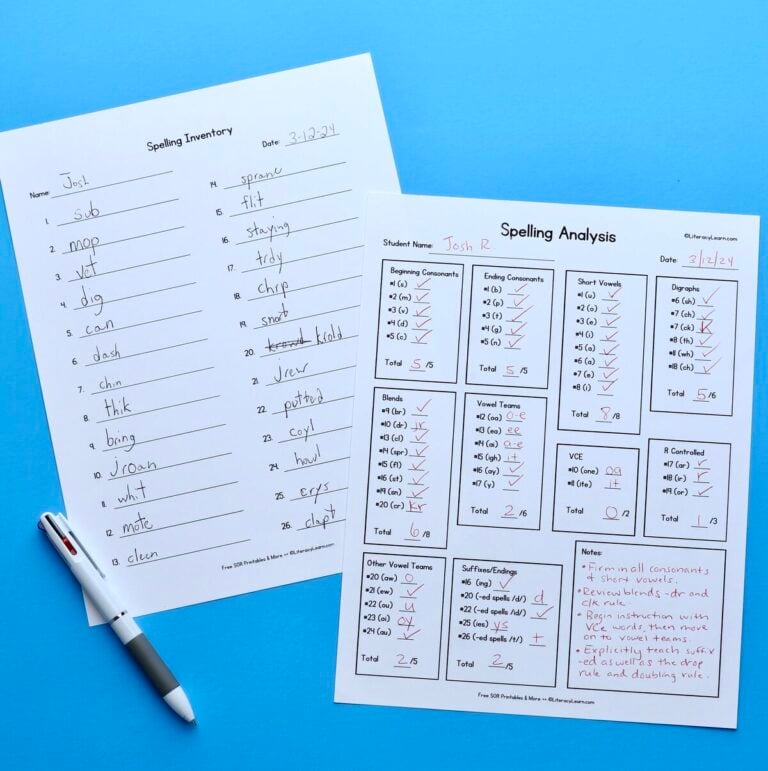 Spelling Inventory
Name: Josh
Date: 3-12-24
1. sub
2. mop
3. vet
4. dig
5. can
6. dash
7. chin
8. thik
9. bring
10. jroan
11. whit
12. mote
13. cleen
14. sprane
15. flit
16. staying
17. trdy
18. chrp
19. snort
20. krowd krold
21. Jrew
22. putted
23. coyl
24. howl
25. crys
26. clapt
Free SOR Printables & More ++ ©LiteracyLearn.com
Spelling Analysis
©LiteracyLearn.com
Student Name: Josh R.
Date: 3/12/24
Beginning Consonants
#1 (s) ✓
#2 (m) ✓
#3 (v) ✓
#4 (d) ✓
#5 (c) ✓
Total 5 /5
Ending Consonants
#1 (b) ✓
#2 (p) ✓
#3 (t) ✓
#4 (g) ✓
#5 (n) ✓
Total 5 /5
Short Vowels
#1 (u) ✓
#2 (o) ✓
#3 (e) ✓
#4 (i) ✓
#5 (a) ✓
#6 (a) ✓
#7 (e) ✓
#8 (i) ✓
Total 8 /8
Digraphs
#6 (sh) ✓
#7 (ch) ✓
#7 (ck) k
#8 (th) ✓
#11 (wh) ✓
#18 (ch) ✓
Total 5 /6
Blends
#9 (br) ✓
#10 (dr) jr
#13 (cl) ✓
#14 (spr) ✓
#15 (fl) ✓
#16 (st) ✓
#19 (sn) ✓
#20 (cr) kr
Total 6 /8
Vowel Teams
#12 (oa) o-e
#13 (ea) ee
#14 (ai) a-e
#15 (igh) it
#16 (ay) ✓
#17 (y) ✓
Total 2 /6
VCE
#10 (one) oa
#11 (ite) it
Total 0 /2
R Controlled
#17 (ar) r
#18 (ir) r
#19 (or) ✓
Total 1 /3
Other Vowel Teams
#20 (ow) o
#21 (ew) ✓
#22 (ou) u
#23 (oi) oy
#24 (au) ✓
Total 2 /5
Suffixes/Endings
#16 (ing) ✓
#20 (-ed spells /d/) d
#22 (-ed spells /id/) ✓
#25 (ies) ys
#26 (-ed spells /t/) t
Total 2 /5
Notes:
• Firm in all consonants
& short vowels.
• Review blends -dr and
c/k rule.
• Begin instruction with
VCe words, then move
on to vowel teams.
• Explicitly teach suffix
-ed as well as the drop
rule and doubling rule.
Free SOR Printables & More ++ ©LiteracyLearn.com